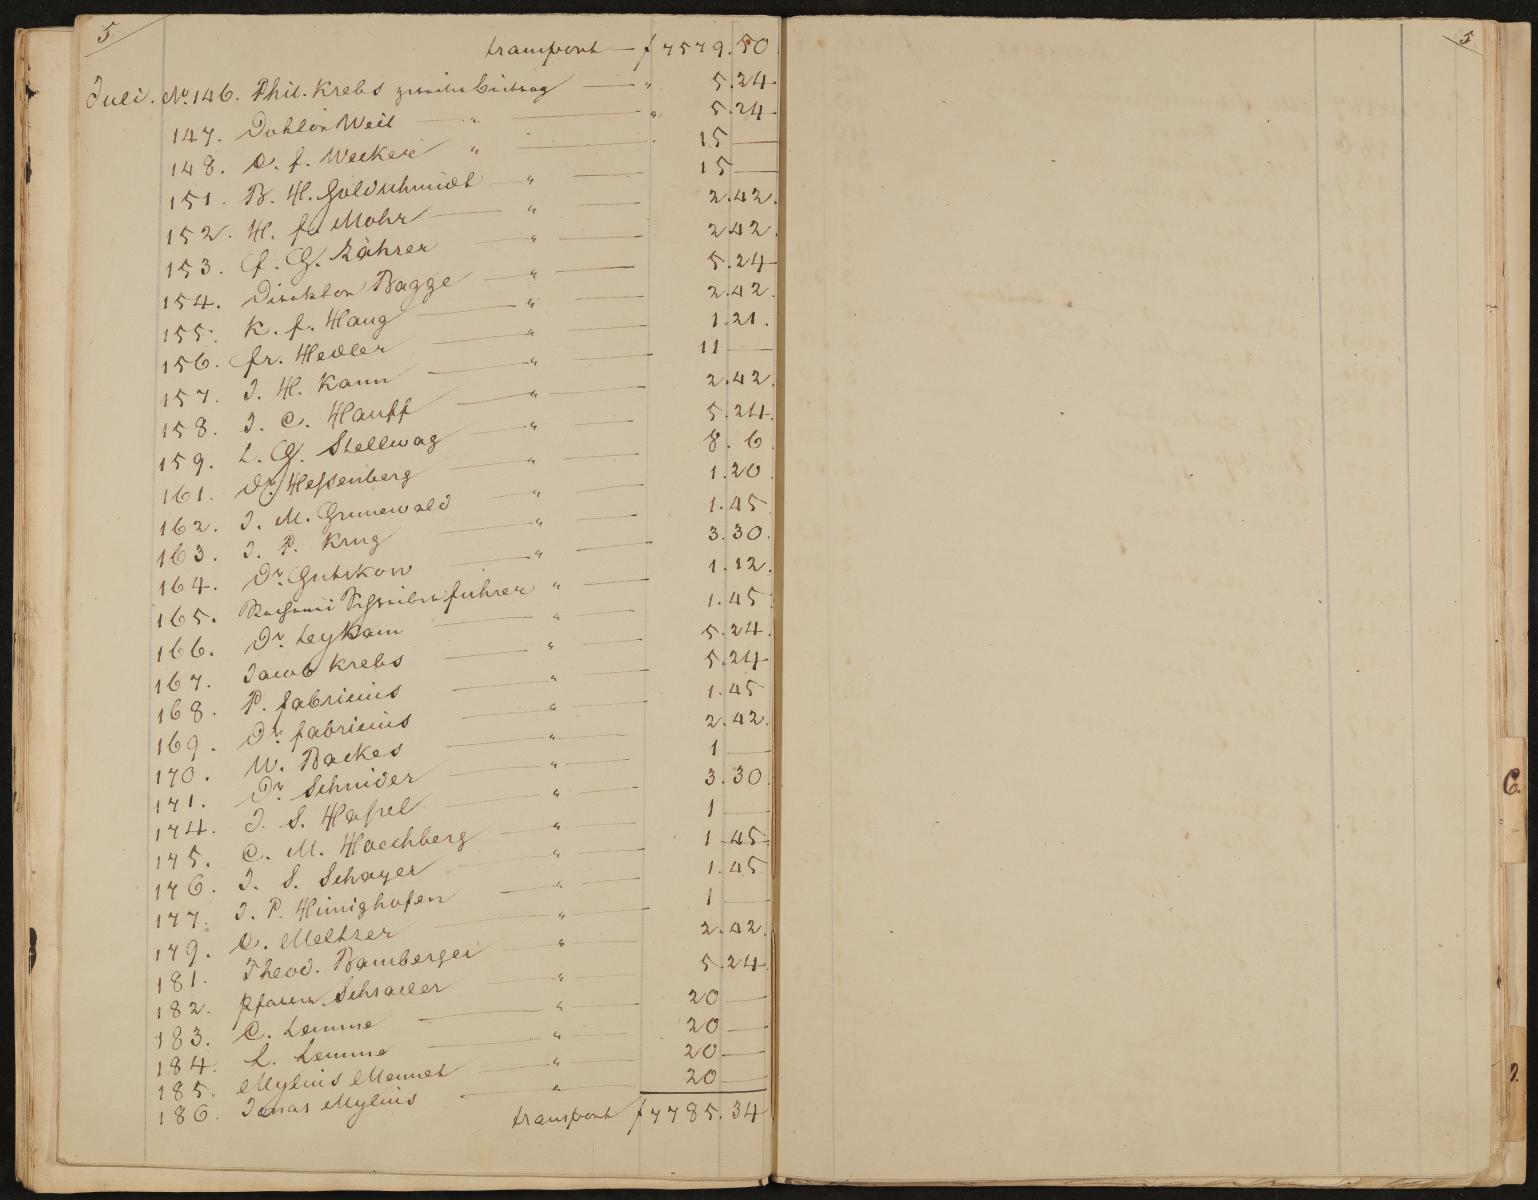 5 5
transport — f 7579.50
Juli. No. 146. Phil. Krebs zweiter Beitrag — " 5.24
147. Doktor Weil — " — " 5.24
148. C. f. Wecker " — " 15 —
151. B. H. Goldschmidt — " — 15 —
152. H. f. Mohr — " — 2.42.
153. f. G. Kährer — " — 2.42.
154. Direktor Bagge — " — 5.24
155. K. f. Haug — " — 2.42.
156. fr. Hedler — " — 1.21.
157. J. H. Kann — " — 11 —
158. J. C. Hauff — " — 2.42.
159. L. G. Stellwag — " — 5.24.
161. Dr. Hessenberg — " — 8. 6.
162. J. M. Grunewald — " — 1.20.
163. J. P. Krug — " — 1.45
164. Dr. Gutzkow — " — 3.30.
165. führer " — 1.12.
166. Dr. Leykam — " — 1.45
167. Jacob Krebs — " — 5.24.
168. P. fabricius — " — 5.24
169. Dr. fabricius — " — 1.45
170. W. Backes — " — 2.42.
171. Dr. Schnider — " — 1 —
174. J. S. Hassel — " — 3.30
175. C. M. Hoechberg — " — 1 —
176. J. S. Schayer — " — 1.45
177. J. P. Hünighofen — " — 1.45
179. C. Meltzer — " — 1 —
181. Theod. Bamberger — " — 2.42.
182. Pfarrer Schrader — " — 5.24
183. C. Lemme — " — 20 —
184. L. Lemme — " — 20 —
185. Mylius Mennet — " — 20 —
186. Jonas Mylius — " — 20 —
transport f 7785.34
C.